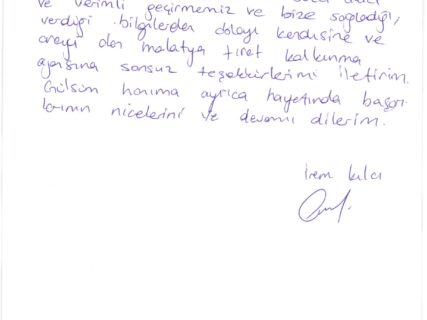 ve verimli geçirmemiz ve bize sağladığı,
verdiği bilgilerden dolayı kendisine ve
olan malatya fırat kalkınma
ajansına sonsuz teşekkürlerimi iletirim.
Gülsüm hanıma ayrıca hayatında başarı-
larının nicelerini ve devamı dilerim.
İrem